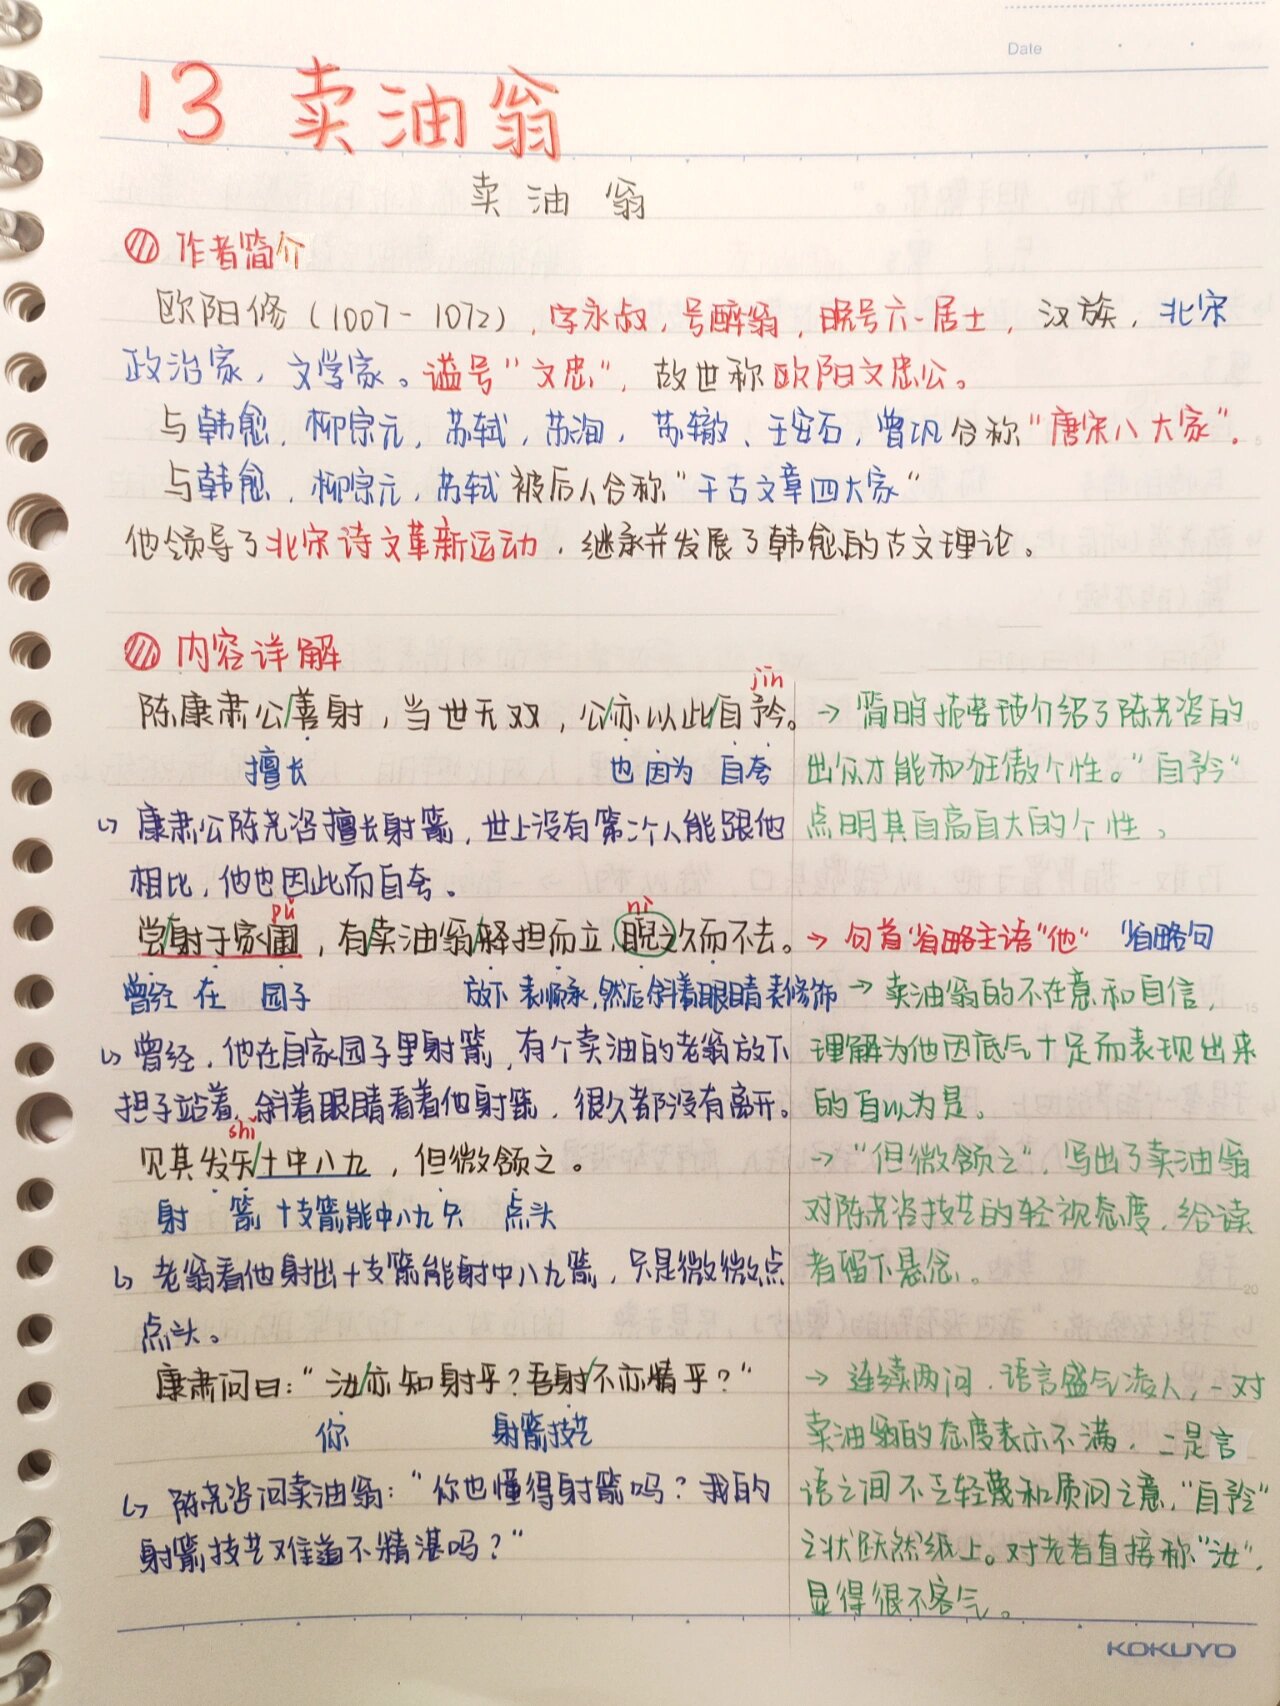 Date
13 卖油翁
卖油翁
作者简介
欧阳修(1007-1072),字永叔,号醉翁,晚号六一居士,汉族,北宋
政治家,文学家。谥号"文忠",故世称欧阳文忠公。
与韩愈,柳宗元,苏轼,苏洵,苏辙、王安石,曾巩合称"唐宋八大家".
与韩愈,柳宗元,苏轼被后人合称"千古文章四大家"
他领导了北宋诗文革新运动,继承并发展了韩愈的古文理论。
内容详解
jīn
陈康肃公/善射,当世无双,公/亦以此/自矜。
擅长 也 因为 自夸
→ 简明扼要地介绍了陈尧咨的
出众才能和狂傲个性。"自矜"
点明其自高自大的个性。
↳ 康肃公陈尧咨擅长射箭,世上没有第二个人能跟他
相比,他也因此而自夸。
pǔ nì
尝/射于家圃,有/卖油翁/释担而立,睨之久而不去。
→ 句首省略主语"他" 省略句
曾经 在 园子 放下 表顺承,然后 斜着眼睛 表修饰
→ 卖油翁的不在意和自信,
理解为他因底气十足而表现出来
的自以为是。
↳ 曾经,他在自家园子里射箭,有个卖油的老翁放下
担子站着,斜着眼睛看着他射箭,很久都没有离开。
shǐ
见其发矢/十中八九,但微颔之。
射 箭 十支箭能中八九 只 点头
→ "但微颔之",写出了卖油翁
对陈尧咨技艺的轻视态度,给读
者留下悬念。
↳ 老翁看他射出十支箭能射中八九箭,只是微微点
点头。
康肃问曰:"汝/亦知射乎?吾射/不亦精乎?"
你 射箭技艺
→ 连续两问,语言盛气凌人,一对
卖油翁的态度表示不满,二是言
语之间不乏轻蔑和质问之意,"自矜"
之状跃然纸上。对老者直接称"汝",
显得很不客气。
↳ 陈尧咨问卖油翁:"你也懂得射箭吗?我的
射箭技艺难道不精湛吗?"
KOKUYO